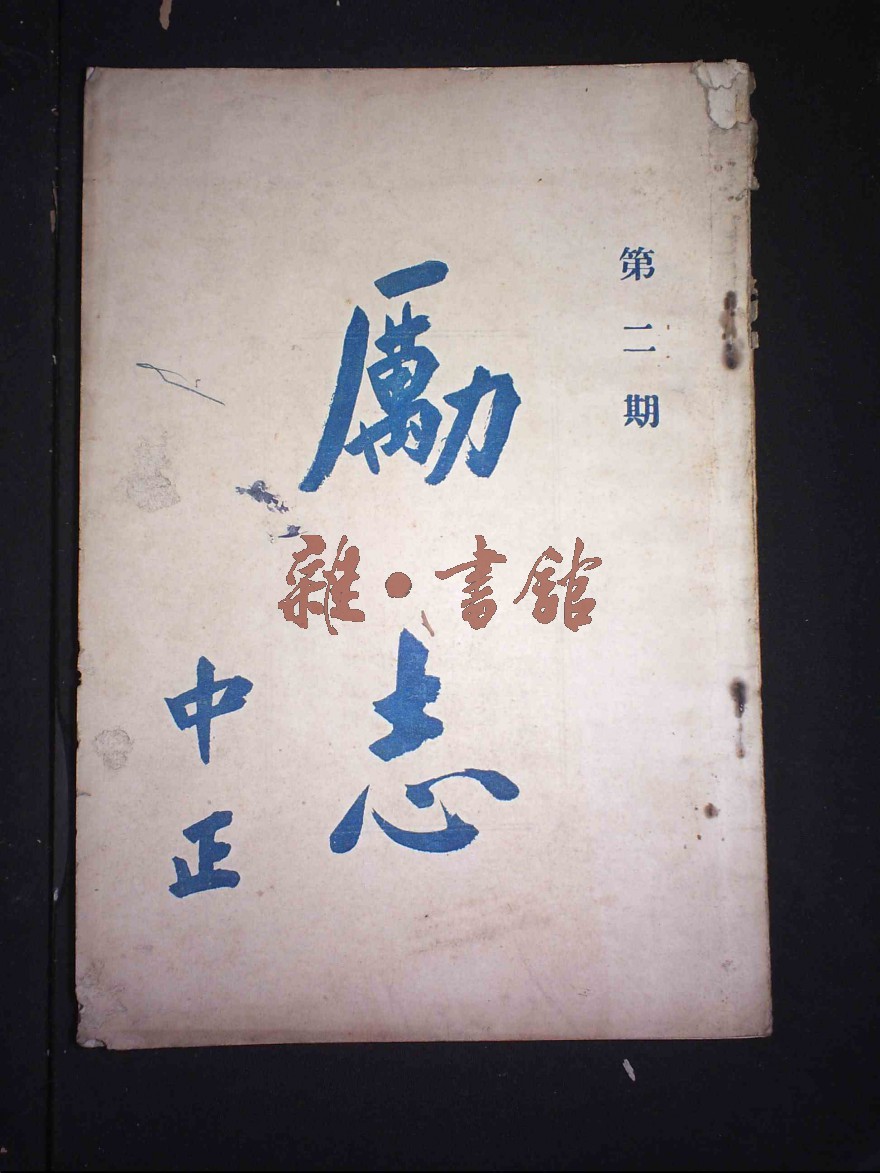 第二期
勵志
中正
雜·書館